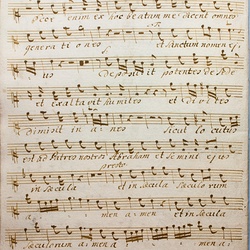 ecce enim ex hoc beatam me dicent omnes
generationes et sanctum nomen ej
us Deposuit potentes de Sede
et exaltavit humiles et divites
dimisit inanes Sicut locutus
est ad Patres nostros Abraham et semini ejus
presto
in Sæcula et in Sæcula Sæculorum
amen amen et in Sæcula
Sæculorum amena mena